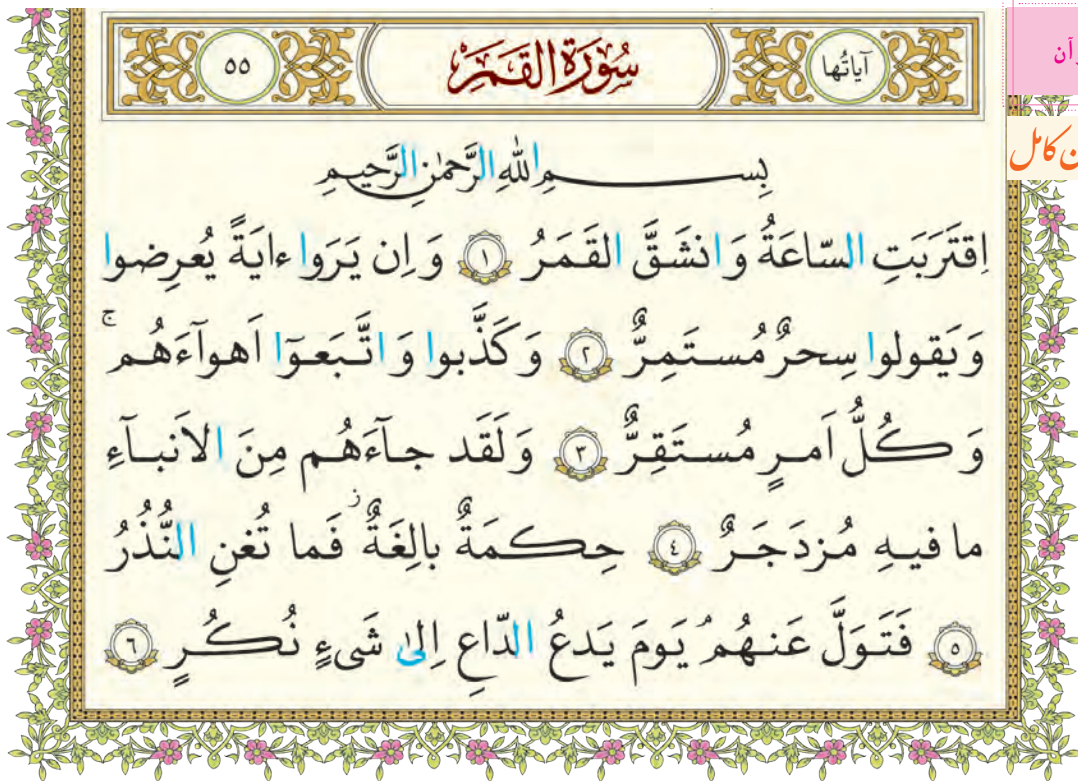 آیاتُها
سُورَةُ القَمَر
٥٥
بِسمِ اللّٰهِ الرَّحمٰنِ الرَّحیمِ
اِقتَرَبَتِ السّاعَةُ وَ انشَقَّ القَمَرُ ١ وَ اِن یَرَوا ءایَةً یُعرِضوا
وَ یَقولوا سِحرٌ مُستَمِرٌّ ٢ وَ کَذَّبوا وَ اتَّبَعوٓا اَهوآءَهُم ۚ
وَ کُلُّ اَمرٍ مُستَقِرٌّ ٣ وَ لَقَد جآءَهُم مِنَ الاَنبآءِ
ما فیهِ مُزدَجَرٌ ٤ حِکمَةٌ بالِغَةٌ ز فَما تُغنِ النُّذُرُ
٥ فَتَوَلَّ عَنهُم ۘ یَومَ یَدعُ الدّاعِ اِلیٰ شَیءٍ نُکُرٍ ٦